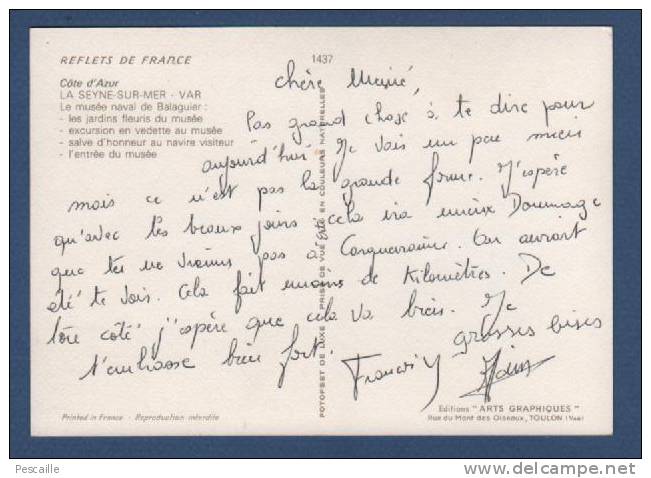 REFLETS DE FRANCE
1437
Côte d'Azur
LA SEYNE-SUR-MER - VAR
Le musée naval de Balaguier :
- les jardins fleuris du musée
- excursion en vedette au musée
- salve d'honneur au navire visiteur
- l'entrée du musée
chère
Pas grand chose à te dire pour
aujourd'hui Je vais un peu mieux
mais ce n'est pas la grande forme. J'espère
qu'avec les beaux jours cela ira mieux Dommage
que tu ne viennes pas à Carqueiranne. On aurait
été te voir. Cela fait moins de Kilomètres. De
ton côté j'espère que cela va bien. Je
t'embrasse bien fort. grosses bises
PHOTOFSET DE LUXE PRISE DE VUE EN COULEURS NATURELLES
Printed in France - Reproduction interdite
Editions "ARTS GRAPHIQUES"
Rue du Mont des Oiseaux, TOULON (Var)
Pescaille
www.delcampe.net